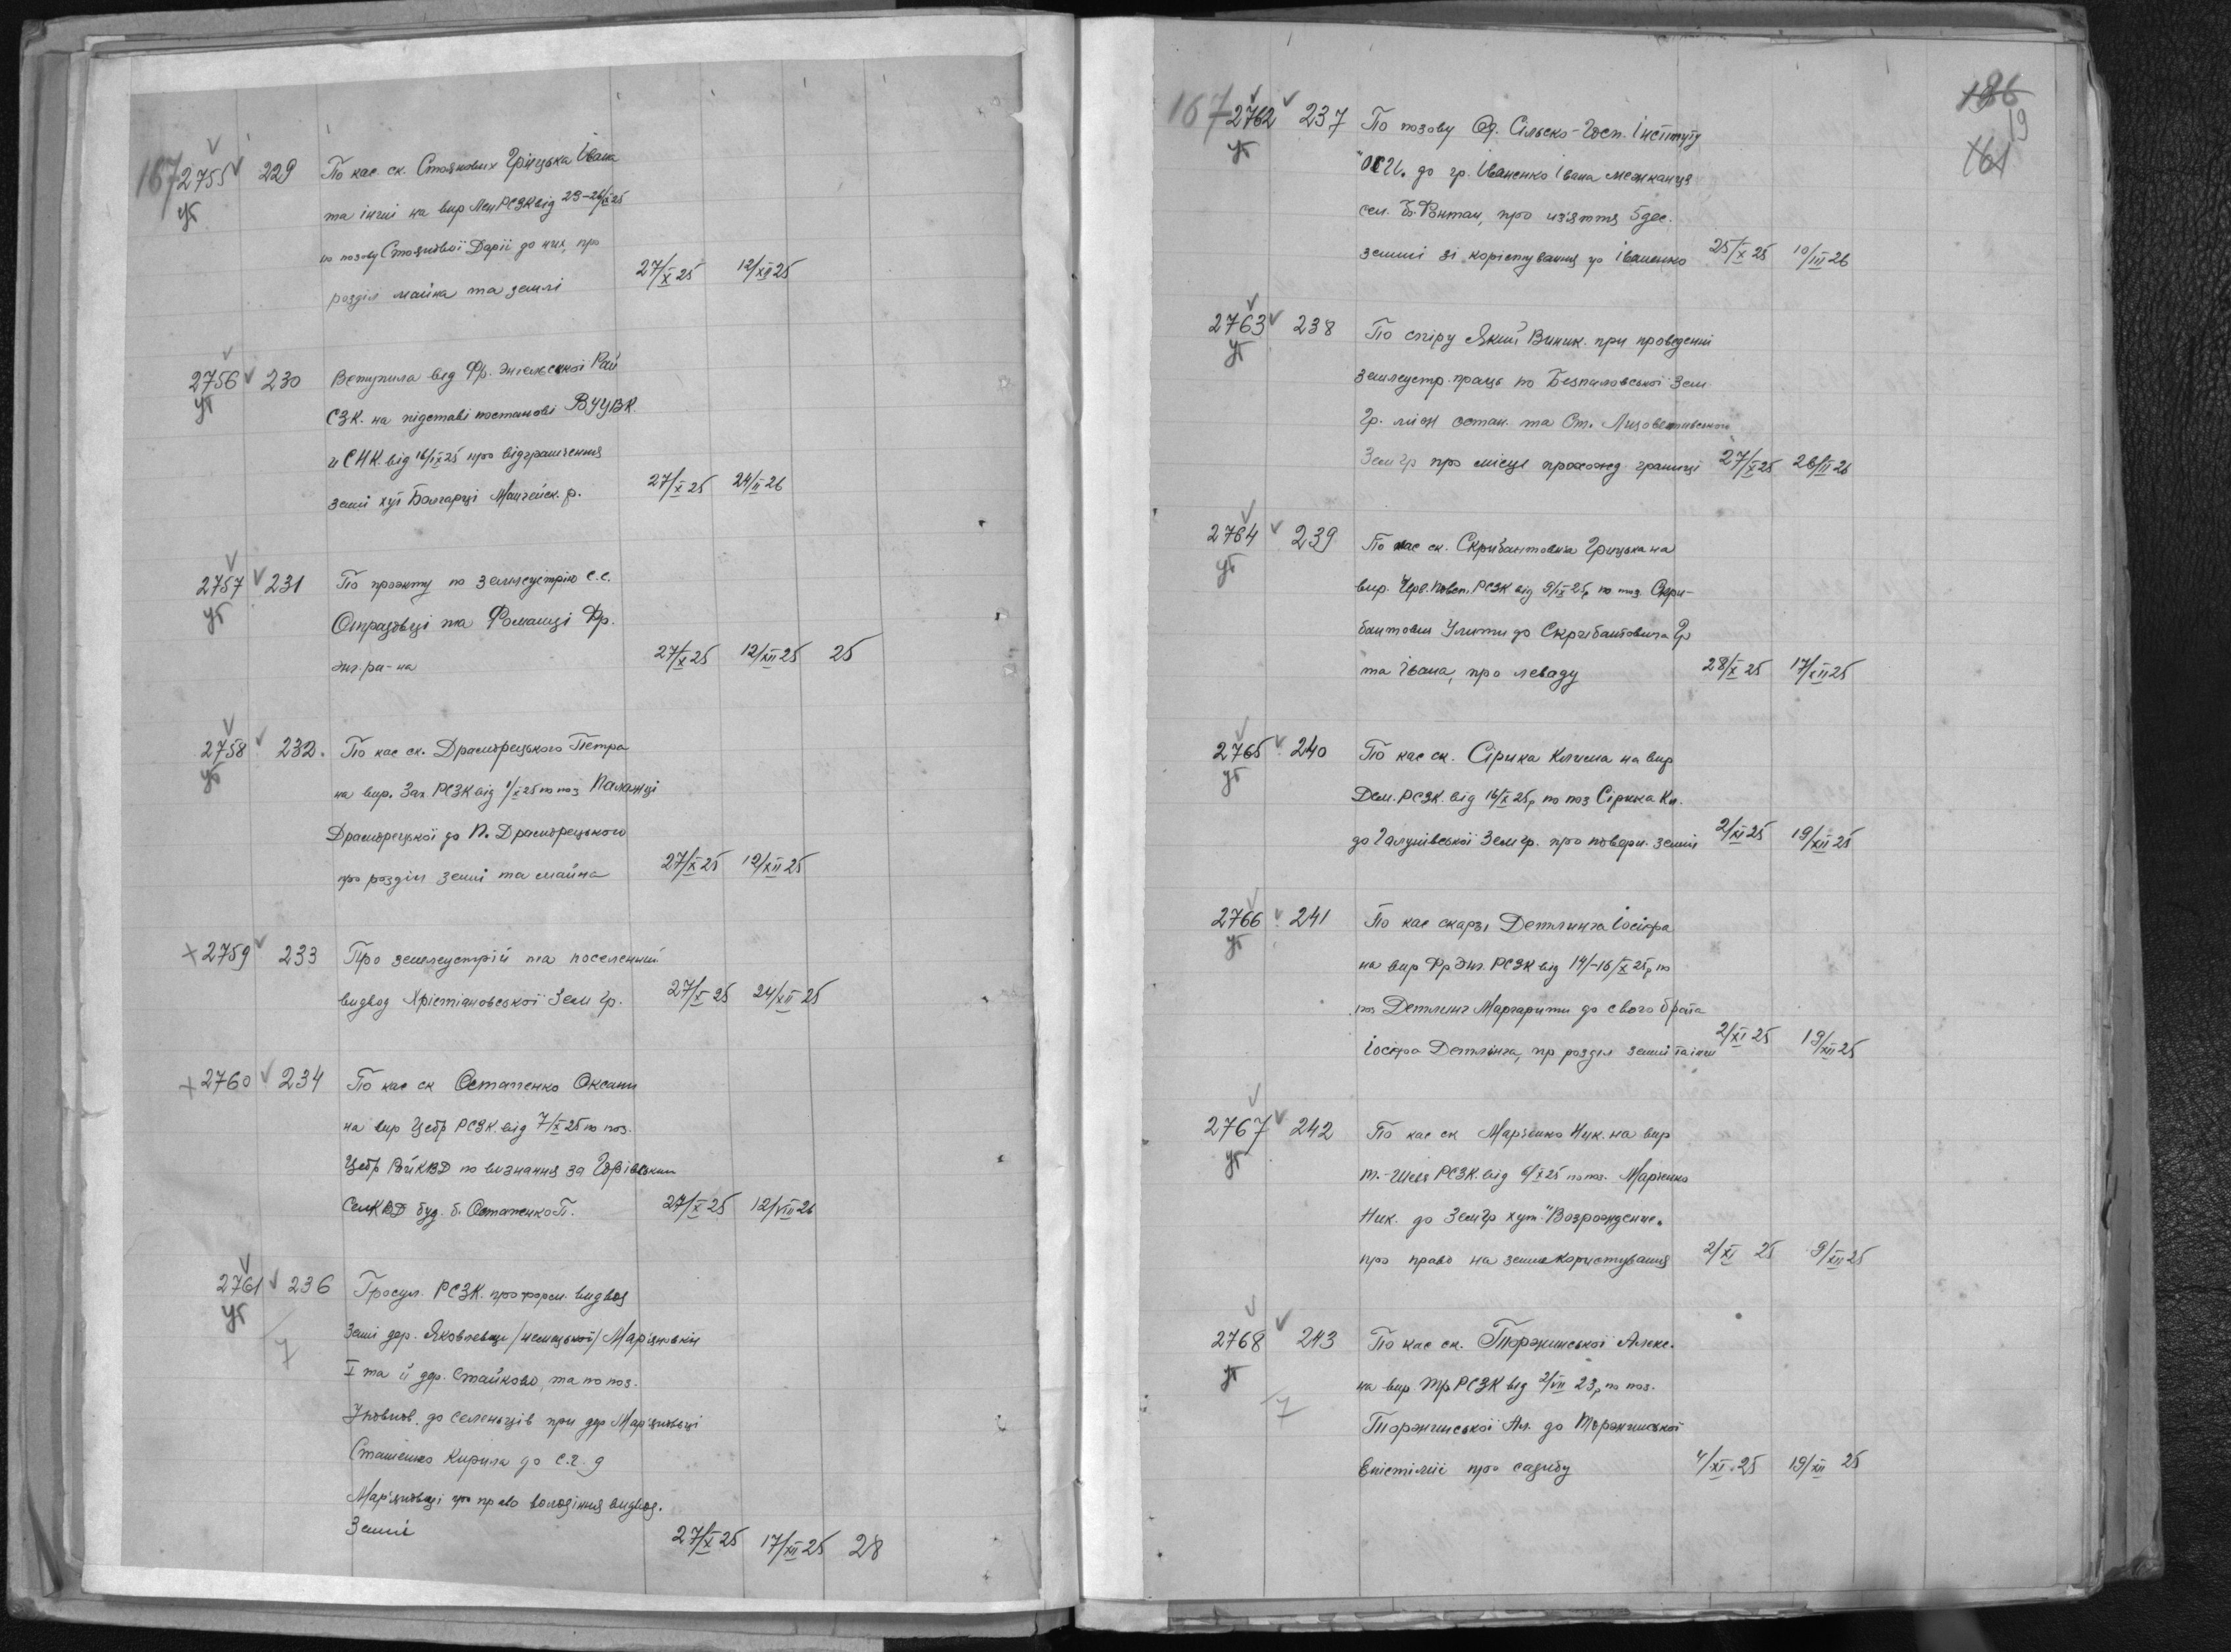 167 2755 229 По кас. ск. Стоянових Грицька Івана
уг
та інші на вир Лен РСЗК від 23-24/IX 25
по позову Стоянової Дарії до них, про
розділ майна та землі 27/X 25 12/XII 25
2756 230 Вступила від Фр. Энгельсської Рай
уг
СЗК. на підставі постанові ВУЦВК
и СНК. від 16/IX 25 про відграничення
землі хут Болгарці Маяческ. р. 27/X 25 24/II 26
2757 231 По проэкту по землеустрію с.с.
уг
Отрадовці та Фоманці Фр.
энг. ра-на 27/X 25 12/XII 25 25
2758 232. По кас ск. Драгиорецького Петра
уг
на вир. Зах. РСЗК від 1/X 25 по поз Палажці
Драгиорецької до П. Драгиорецького
про розділ землі та майна 27/X 25 12/XII 25
+ 2759 233 Про землеустрій та поселенний
видвод Хрістіановської Зем гр. 27/X 25 24/XII 25
+ 2760 234 По кас ск Остапенко Оксани
на вир Цебр РСЗК. від 7/X 25 по поз.
Цебр РайКВД по визнання за
СелКВД буд. б. Остапенко П. 27/X 25 12/VIII 26
2761 236 Гросул. РСЗК. про форм. видвод
уг
7
Землі дер. Яковлевки /немецької/ Мар'яновки
I та й дер. Стайково, та по поз.
до селенців при дер Мар'яновці
Сташенко Кирила до с.г. д
Мар'яновці про право володіння видвод.
Землі 27/X 25 17/XII 25 28
186
19
161
167 2762 237 По позову Од. Сільско-Госп. Інституту
уг
"ОСГИ" до гр. Іваненко Івана мешканця
сел. Б. Фонтан, про из'яття 5 дес.
землі зі корістування гр Іваненко 25/X 25 10/III 26
2763 238 По спіру Який Виник. при проведенні
уг
землеустр. праць по Безпаловської Зем
Гр. між остан. та Ст.
Зем Гр про місце проходж. границі 27/X 25 26/II 26
2764 239 По кас ск. Скрибантовича Грицька на
уг
вир. Черв. Повст. РСЗК від 9/IX 25р по поз. Скри-
бантович Улити до Скрибантовича Гр
та Івана, про леваду 28/X 25 17/XII 25
2765 240 По кас ск. Сірика Клима на вир
уг
Дем. РСЗК. від 16/X 25р по поз Сірика Кл.
до Галунівської Зем гр. про поверн. землі 2/XI 25 19/XII 25
2766 241 По кас скарзі Детлинга Іосіфа
уг
на вир Фр Энг. РСЗК від 14/-16/X 25р по
поз Детлинг Маргарити до свого брата
Іосіфа Детлінга, пр розділ землі та інш 2/XI 25 19/XII 25
2767 242 По кас ск Марченко Ник. на вир
уг
Т.-Шевч РСЗК. від 6/X 25 по поз. Марченко
Ник. до ЗемГр хут. "Возрождение"
про право на землекористування 2/XI 25 9/XII 25
2768 243 По кас ск. Торжинської Алекс.
уг
7
на вир Тир РСЗК від 2/VII 23р по поз.
Торжинської Ал. до Торжинської
Єпістімії про садибу 4/XI 25 19/XII 25